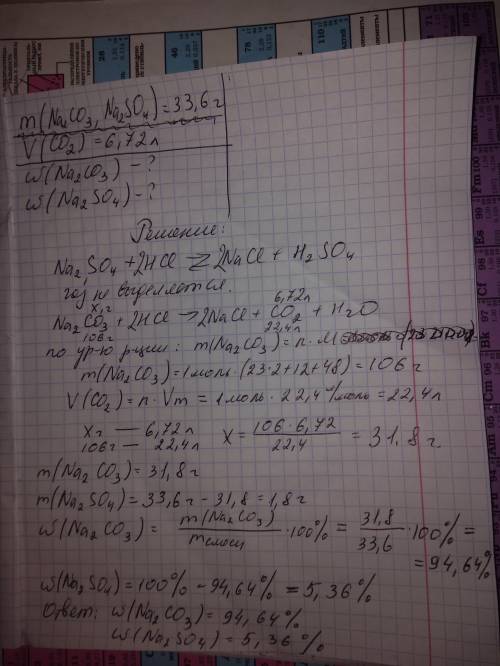 m(Na₂CO₃, Na₂SO₄) = 33,6 г
V(CO₂) = 6,72 л
ω(Na₂CO₃) - ?
ω(Na₂SO₄) - ?
Решение:
Na₂SO₄ + 2HCl ⇄ 2NaCl + H₂SO₄
газ не выделяется.
x г 6,72 л
Na₂CO₃ + 2HCl → 2NaCl + CO₂ + H₂O
106 г 22,4 л
по ур-ю р-ции: m(Na₂CO₃) = n · M
m(Na₂CO₃) = 1 моль · (23·2+12+48) = 106 г
V(CO₂) = n · Vm = 1 моль · 22,4 л/моль = 22,4 л
x г — 6,72 л
106 г — 22,4 л
x = 106 · 6,72 / 22,4 = 31,8 г
m(Na₂CO₃) = 31,8 г
m(Na₂SO₄) = 33,6 г - 31,8 = 1,8 г
ω(Na₂CO₃) = m(Na₂CO₃) / m смеси · 100% = 31,8 / 33,6 · 100% =
= 94,64%
ω(Na₂SO₄) = 100% - 94,64% = 5,36%
Ответ: ω(Na₂CO₃) = 94,64%
ω(Na₂SO₄) = 5,36%
28
46
78
110
Fm 100
Es 99
Cf 98
Bk
Cm 96